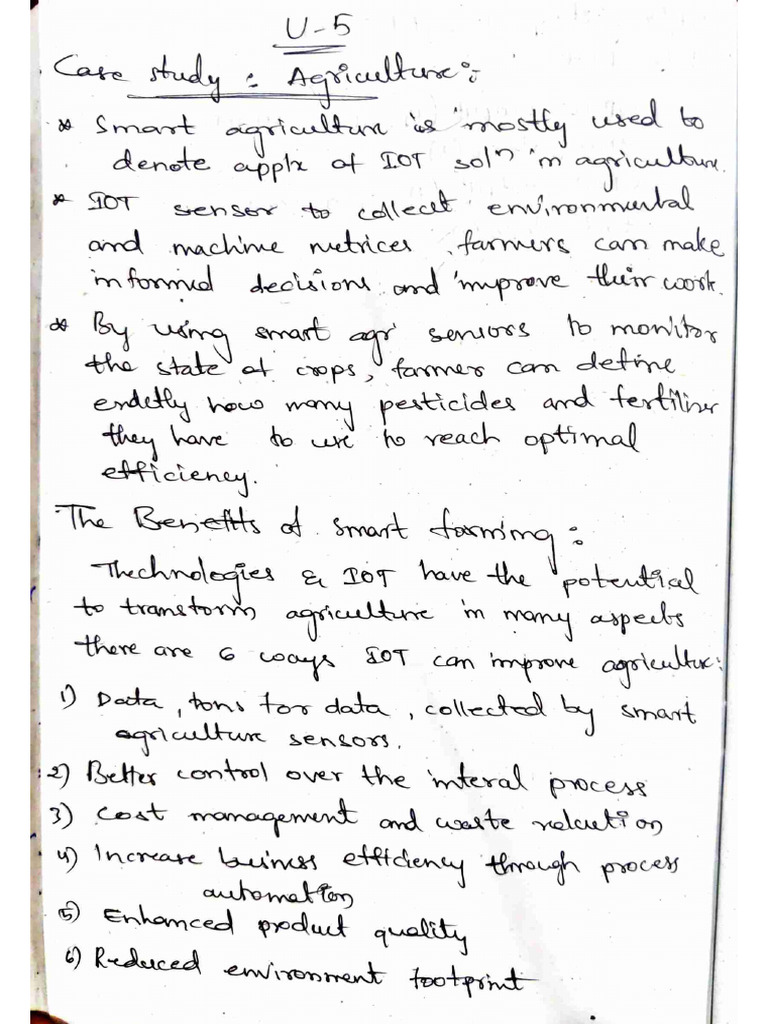 U-5
Case study : Agriculture:-
* Smart agriculture is mostly used to
denote appln of IOT solⁿ in agriculture.
* IOT sensor to collect environmental
and machine metrices, farmers can make
informed decisions and improve their work.
* By using smart agr sensors to monitor
the state of crops, farmer can define
how many pesticides and fertilizer
they have to use to reach optimal
efficiency.
The Benefits of smart farming :
Thechnologies & IOT have the potential
to transform agriculture in many aspects
there are 6 ways IOT can improve agriculture:
1) Data, tons for data, collected by smart
agriculture sensors.
2) Better control over the interal process
3) Cost management and waste reduction
4) Increase business efficiency through process
automation
5) Enhanced product quality
6) Reduced environment footprint